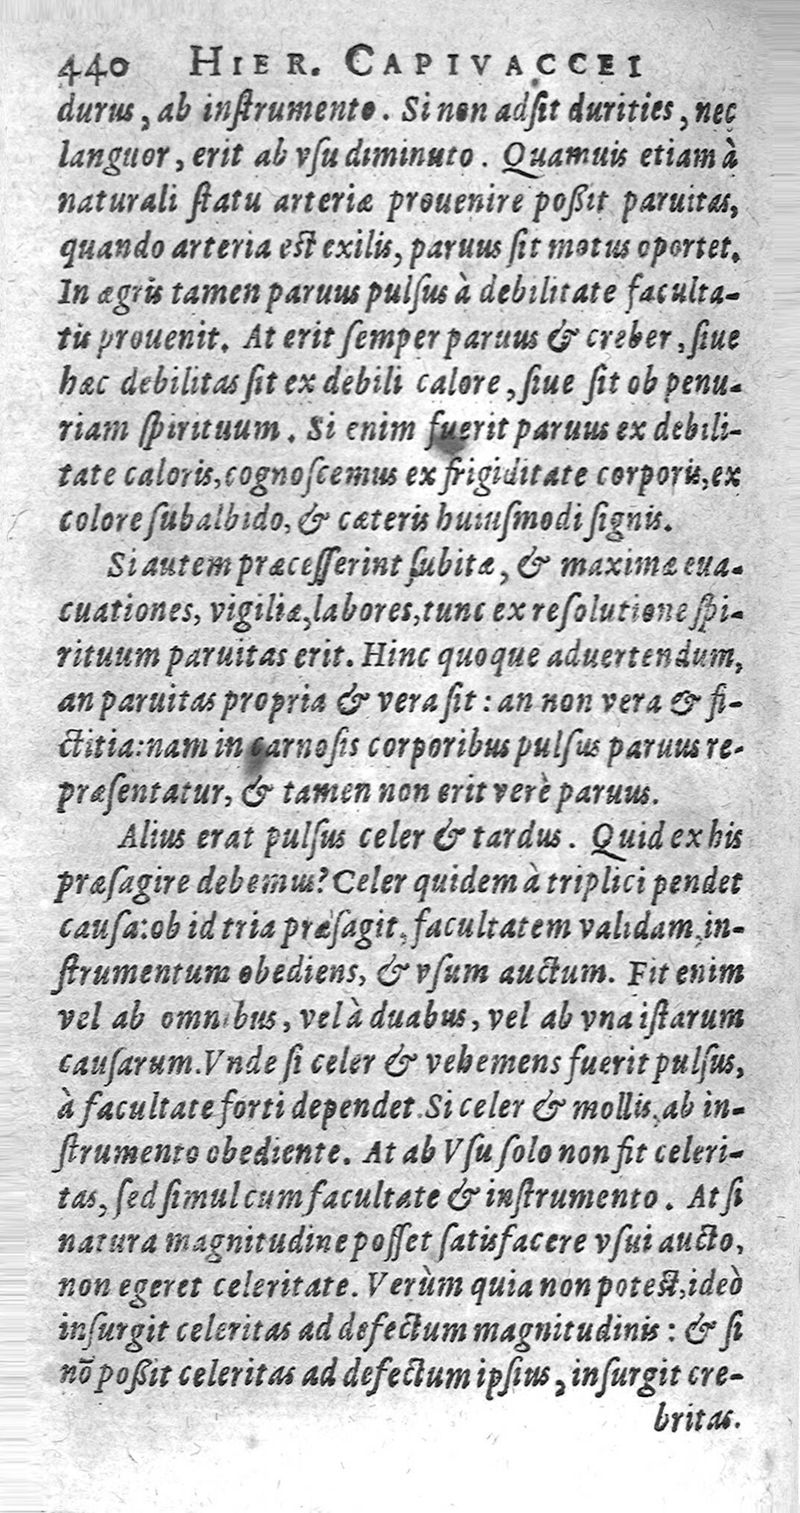 440 HIER. CAPIVACCEI
durus, ab inſtrumento. Si non adſit durities, nec
languor, erit ab vſu diminuto. Quamuis etiam à
naturali ſtatu arteriæ prouenire poßit paruitas,
quando arteria est exilis, paruus ſit motus oportet.
In ægris tamen paruus pulſus à debilitate faculta-
tis prouenit. At erit ſemper paruus & creber, ſiue
hæc debilitas ſit ex debili calore, ſiue ſit ob penu-
riam ſpirituum. Si enim fuerit paruus ex debili-
tate caloris, cognoſcemus ex frigiditate corporis, ex
colore ſubalbido, & cæteris huiuſmodi ſignis.
Si autem præceſſerint ſubitæ, & maximæ eua-
cuationes, vigiliæ, labores, tunc ex reſolutione ſpi-
rituum paruitas erit. Hinc quoque aduertendum,
an paruitas propria & vera ſit: an non vera & fi-
ctitia: nam in carnoſis corporibus pulſus paruus re-
præſentatur, & tamen non erit verè paruus.
Alius erat pulſus celer & tardus. Quid ex his
præſagire debemus? Celer quidem à triplici pendet
cauſa: ob id tria præſagit, facultatem validam, in-
ſtrumentum obediens, & vſum auctum. Fit enim
vel ab omnibus, vel à duabus, vel ab vna iſtarum
cauſarum. Vnde ſi celer & vehemens fuerit pulſus,
à facultate forti dependet. Si celer & mollis, ab in-
ſtrumento obediente. At ab Vſu ſolo non fit celeri-
tas, ſed ſimul cum facultate & inſtrumento. At ſi
natura magnitudine poſſet ſatisfacere vſui aucto,
non egeret celeritate. Verùm quia non potest, ideò
inſurgit celeritas ad defectum magnitudinis: & ſi
nō poßit celeritas ad defectum ipſius, inſurgit cre-
britas.